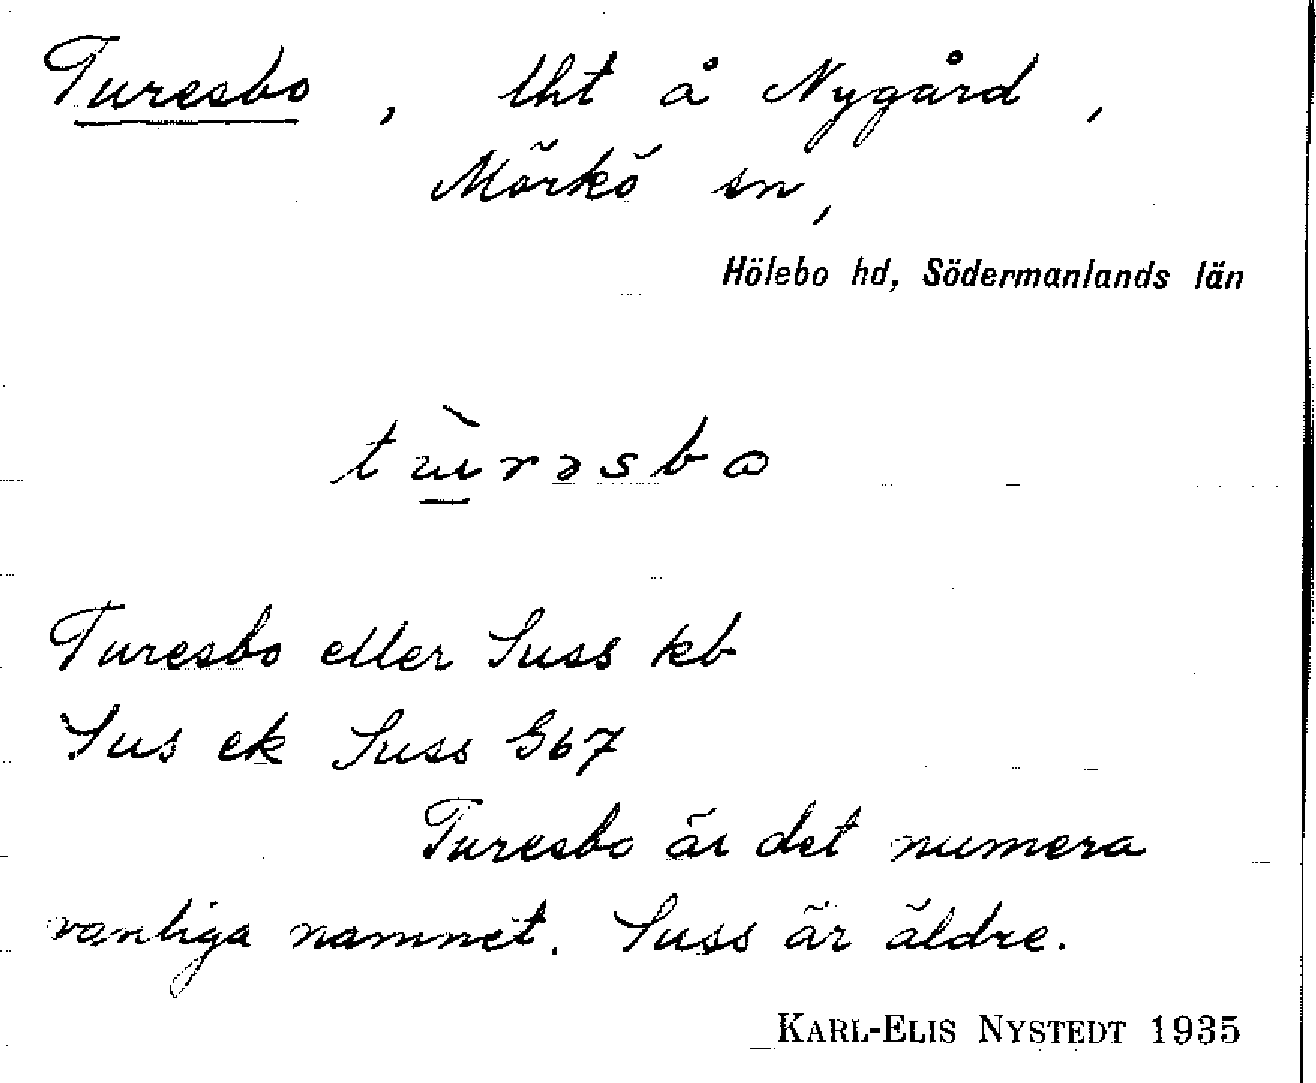 Turesbo, lht å Nygård,
Mörkö sn,
Hölebo hd, Södermanlands län
tùrəsbo
Turesbo eller Suss kb
Sus ek Suss G67
Turesbo är det numera
vanliga namnet. Suss är äldre.
KARL-ELIS NYSTEDT 1935